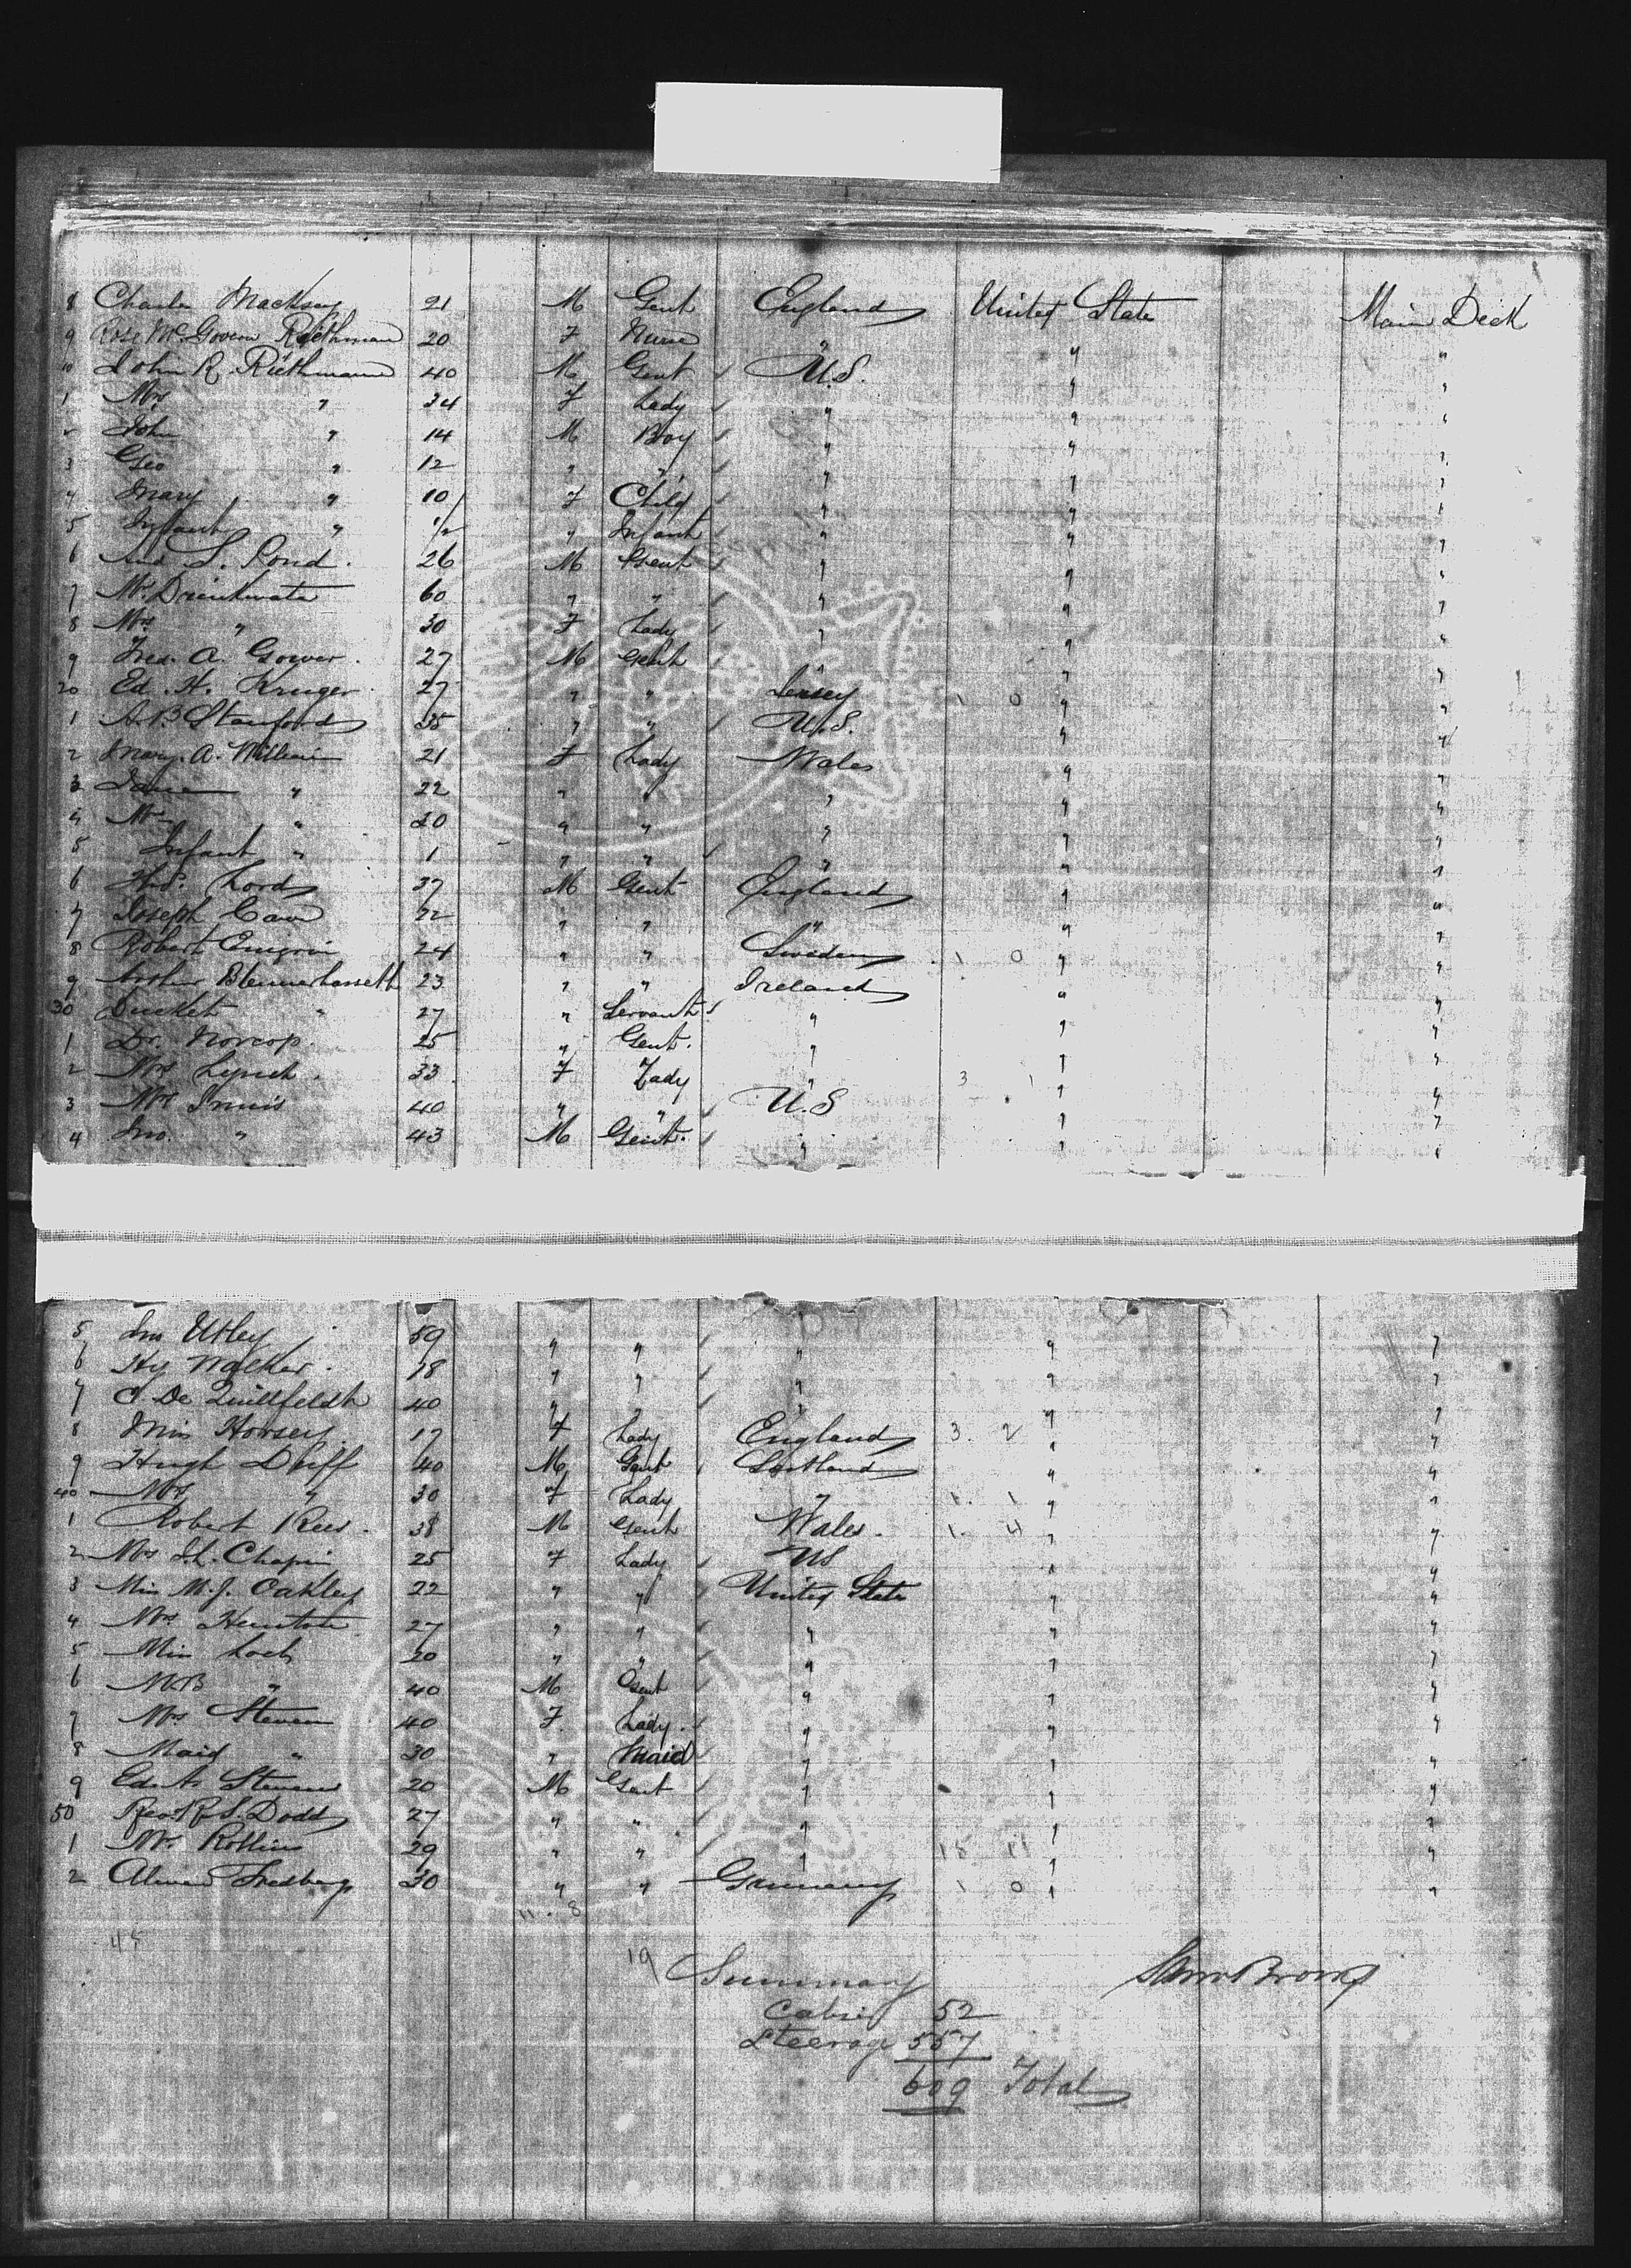 8 Charles Mackay 21 M Gent England United State Main Deck
9 Rose McGovern Riethmann 20 F Nurse " " "
10 John R. Riethmann 40 M Gent U.S. " "
1 Mrs " 34 F Lady " " "
2 John " 14 M Boy " " "
3 Geo " 12 " " " " "
4 Mary " 10 F Child " " "
5 Infant " 1/2 " Infant " " "
6 L. Pond 26 M Gent " " "
7 Mr. Drinkwater 60 " " " " "
8 Mrs " 30 F Lady " " "
9 Fred. A. Gower 27 M Gent " " "
20 Ed. H. Kruger 27 " " Jersey 1 0 " "
1 A. B. Stanford 35 " " U.S. " "
2 Mary. A. William 21 F Lady Wales " "
3 " 22 " " " " "
4 Mrs " 20 " " " " "
5 Infant " 1 " " " " "
6 Thos. Lord 37 M Gent England " "
7 Joseph 22 " " " " "
8 Robert 24 " " Sweden 1 0 " "
9 Arthur Blennerhassett 23 " " Ireland " "
30 Ducket " 27 " Servant " " "
1 Dr. Norcop. 25 " Gent. " " "
2 Mrs Lynch. 33 F Lady " 3 1 " "
3 Mrs 40 " " U.S " "
4 Jno. " 43 M Gent. " " "
5 Jno Utley 59 " " " " "
6 Hy Walker. 18 " " " " "
7 C. De Quillfeldt 40 " " " " "
8 Miss Horsey. 17 F Lady England 3. 2 " "
9 Hugh Duff 40 M Gent Scotland " "
40 Mrs " 30 F Lady " 1. 1 " "
1 Robert Rees. 38 M Gent Wales. 1. 4 " "
2 Mrs S.L. Chapin 25 F Lady US " "
3 Miss M. J. Oakley 22 " " United State " "
4 Mrs 27 " " " " "
5 Miss Loch 20 " " " " "
6 M B " 40 M Gent " " "
7 Mrs Steven 40 F. Lady. " " "
8 Maid " 30 " Maid " " "
9 Steven 20 M Gent " " "
50 Rev. R. S. Dodd 27 " " " " "
1 Mr. Rollins 29 " " " 15 11 " "
2 30 " " Germany 1 0 " "
11. 8
45
19 Summary
Cabin 52
Steerage 557
609 Total